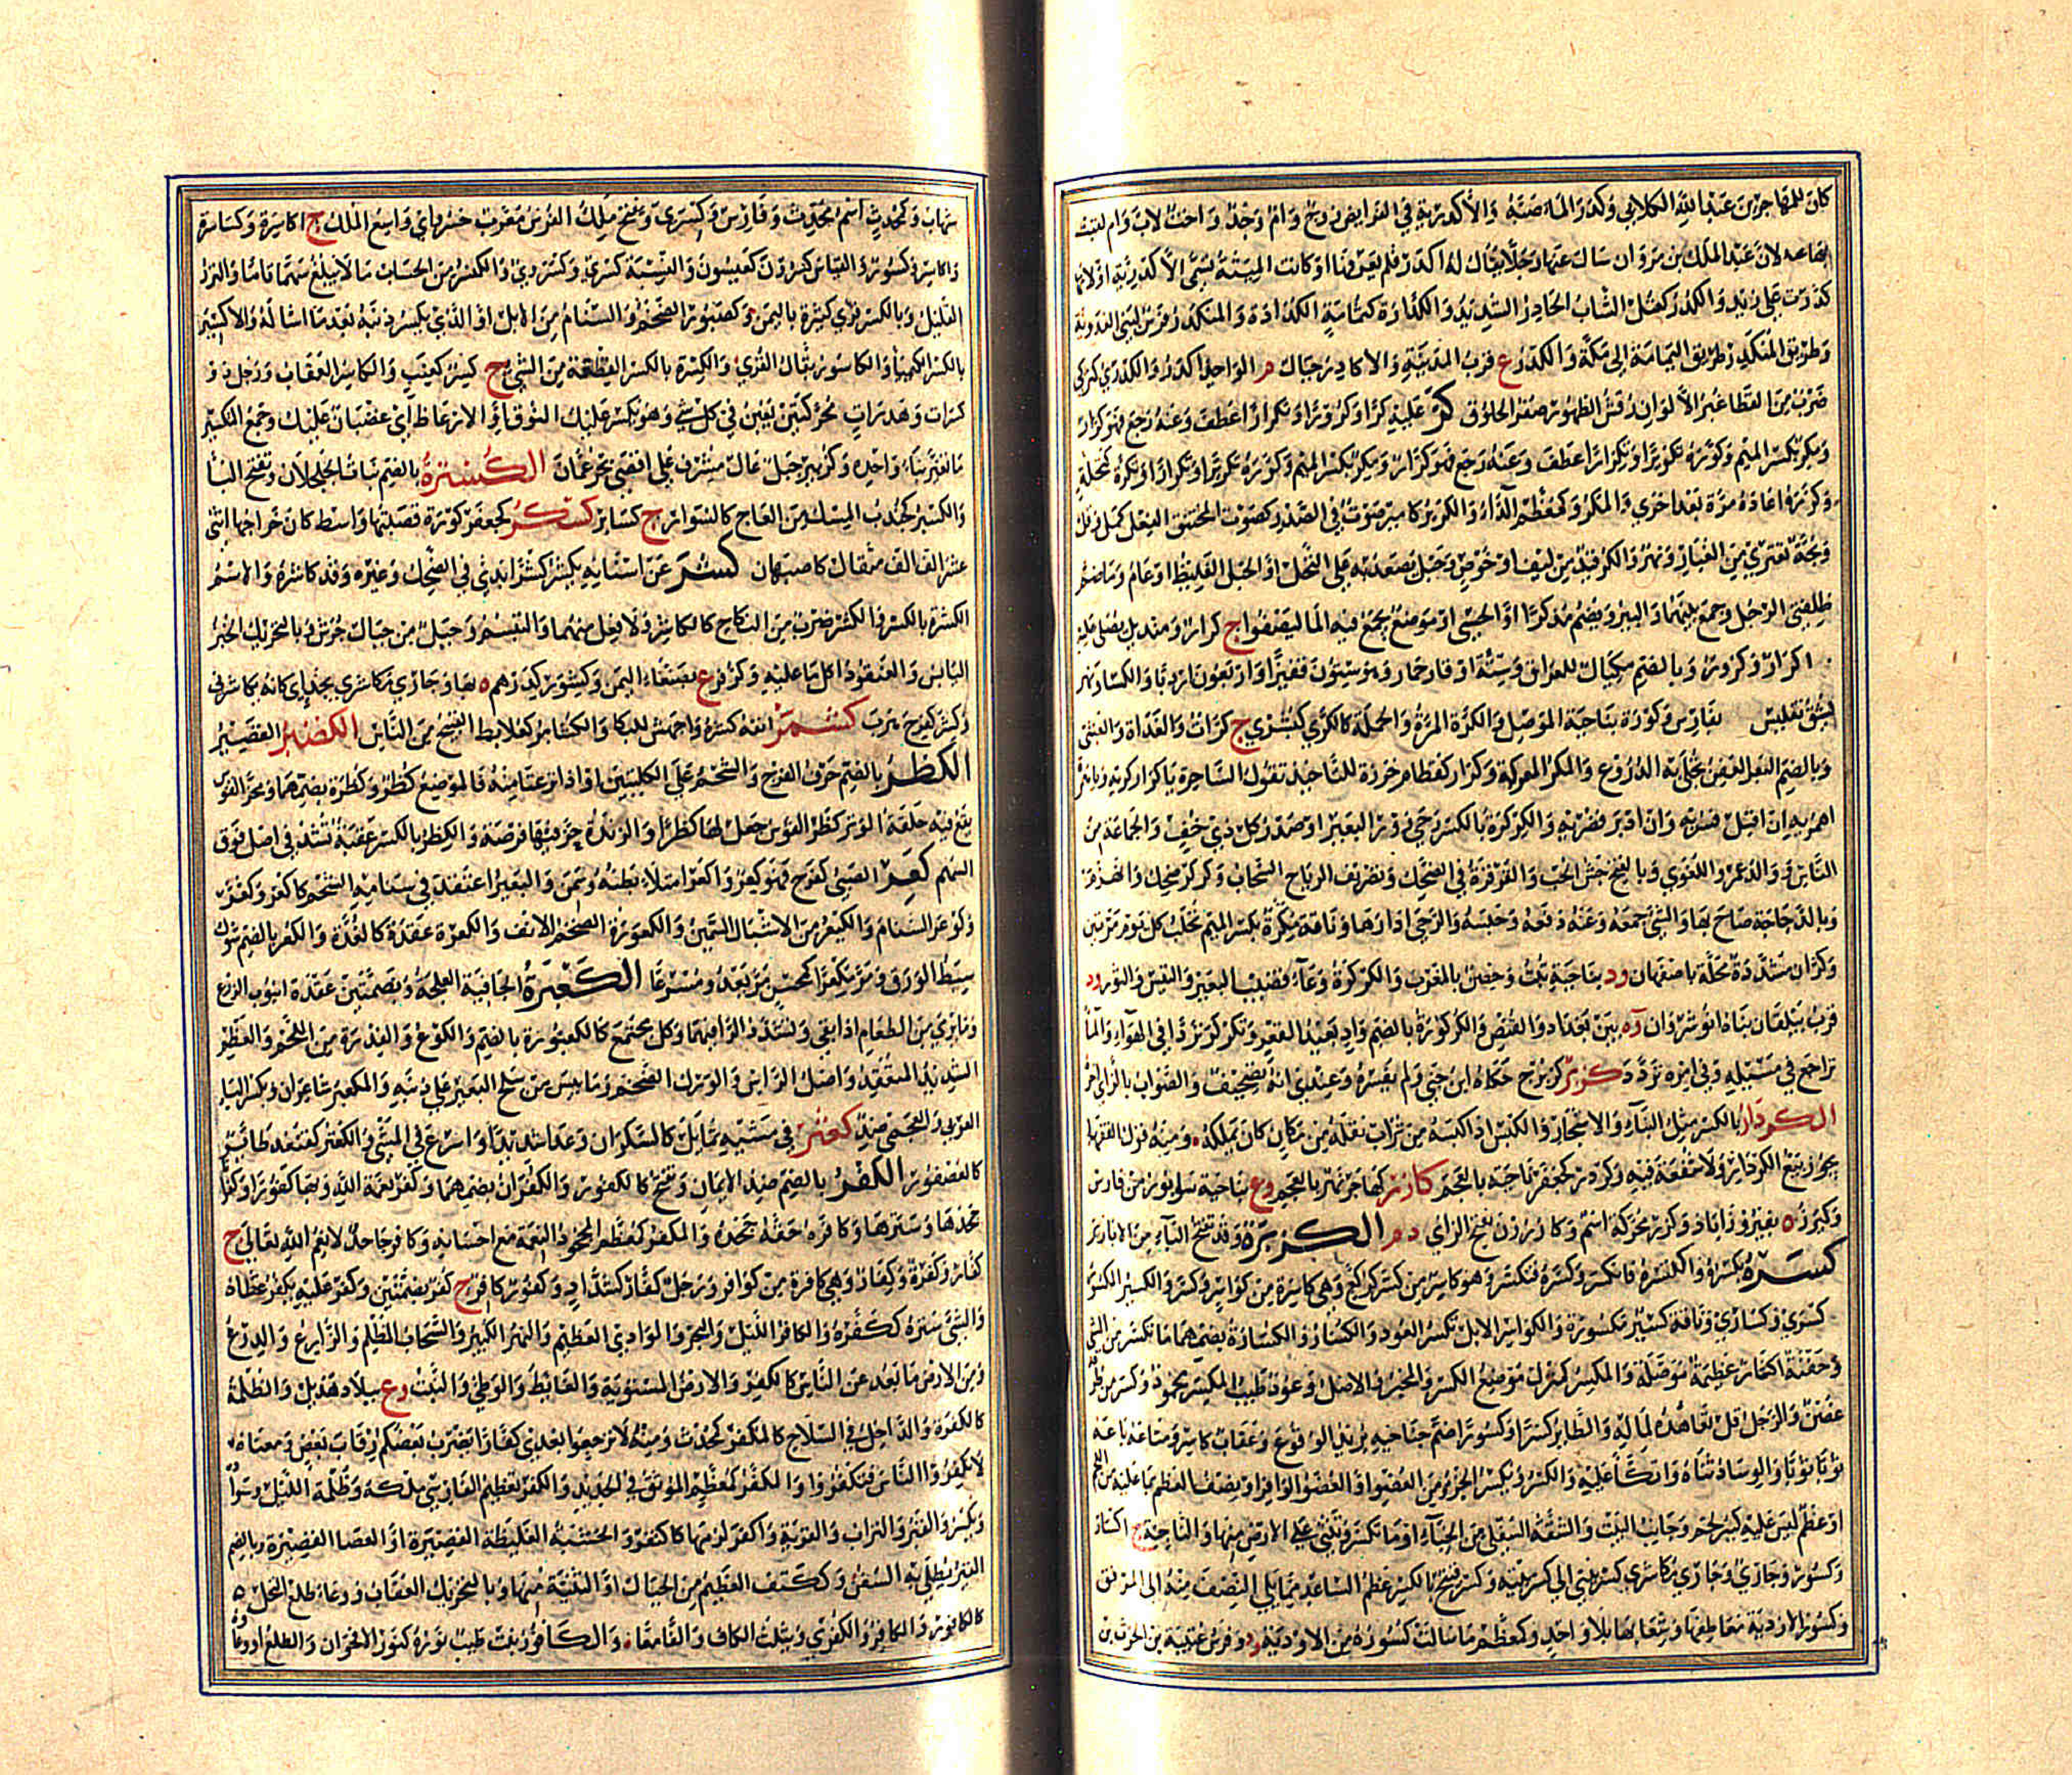 كان للمهاجر بن عبد الله الكلابي وكدر الماء صبه والأكدرية في الفرايض زوج وام وجد واخت لاب وام لقبت
بها عه لان عبد الملك بن مروان سال عنها رجلا يقال له اكدر فلم يعرفها او كانت الميتة تسمى الاكدرية او لانها
كدرت على زيد والكدر كعتل الشاب الحادر الشديد والكدارة كثمامة الكدادة والمنكدر فرس لبني العدوية
وطريق المنكدر طريق اليمامة الى مكة والكدر ع قرب المدينة والاكادر جبال م الواحد اكدر والكدري كتركي
ضرب من القطا غبر الالوان رقش الظهور صفر الحلوق كر عليه كرا وكرورا وتكرارا عطف وعنه رجع فهو كرار
ومكر بكسر الميم وكرره تكريرا وتكرارا وتكرة كتحلة
وكركره اعاده مرة بعد اخرى والمكرر كمعظم الراء والكرير كامير صوت في الصدر كصوت المختنق الفعل كمل وقل
وبحة تعتري من الغبار ونهر والكر قيد من ليف او خوص وحبل يصعد به على النخل او الحبل الغليظ او عام وما ضم
ظلفتي الرحل وجمع بينهما والبير ويضم مذكرا او الحسي او موضع يجمع فيه الما ليصفو ج كرار ومنديل يصلى عليه
ج اكرار وكرور وبالضم مكيال للعراق وستة اوقار حمار وهو ستون قفيزا او اربعون اردبا والكسا ونهر
يشق تفليس بفارس وكورة بناحية الموصل والكرة المرة والحملة كالكرى كبشرى ج كرات والغداة والعشي
وبالضم البعر العفن يجلى به الدروع والمكر المعركة وكرار كقطام خرزة للتاخيذ تقول الساحرة يا كرار كريه
اهمريه ان اقبل فسريه وان ادبر فضريه والكركرة بالكسر رحى زور البعير او صدر كل ذي خف والجماعة من
الناس ووالد عمرو اللغوي وبالفتح جش الحب والقرقرة في الضحك وتصريف الرياح السحاب وكركر ضحك وانهزم
وبالدجاجة صاح بها والشي جمعه وعنه دفعه وحبسه والرحى ادارها وناقة مكرة بكسر الميم تحلب كل يوم مرتين
وكران مشددة محلة باصفهان ود بناحية تبت وحصن بالمغرب والكركرة وعاء قضيب البعير والتيس والثور ود
قرب بيلقان بناه انوشروان وة بين بغداد والقفص والكركورة بالضم واد بعيد القعر وتكركر تردى في الهواء والماء
تراجع في مسيله وفي امره تردد كزبر كزبرج حكاه ابن جني ولم يفسره وعندي انه تصحيف والصواب بالزاي اخرا
الكردار بالكسر مثل البناء والاشجار والكبس اذا كبسه من تراب نقله من مكان كان يملكه ومنه قول الفقها
يجوز بيع الكردار ولا شفعة فيه وكردر كجعفر ناحية بالعجم كارز كهاجر بالعجم وع بناحية سابور من فارس
بفيروزاباد محركة اسم وكارزن بفتح الزاي د م الكزبرة وقد تفتح الباء من الابازير
كسره يكسره واكتسره فانكسر وكسره فتكسر وهو كاسر من كسر كركع وهي كاسرة من كواسر وكسر والكسير المكسور
كسرى وكسارى وناقة كسير مكسورة والكواسر الابل تكسر العود والكسار والكسارة بضمهما ما تكسر من الشي
وجفنة اكسار عظيمة موصلة والمكسر كمنزل موضع الكسر والمخبر والاصل وعود طيب المكسر محمود وكسر من طرفه
غض والرجل قل تعاهده لماله والطائر كسرا وكسورا ضم جناحيه يريد الوقوع وعقاب كاسر ومتاعه باعه
ثوبا ثوبا والوساد ثناه واتكأ عليه والكسر ويكسر الجزء من العضو او العضو الوافر او نصف العظم بما عليه من اللحم
او عظم ليس عليه كبير لحم وجانب البيت والشقة السفلى من الخباء او ما تكسر وتثنى على الارض منها والناحية ج اكسار
وكسور وجاري مكاسري كسر بيتي الى كسر بيته وكسر قبيح بالكسر عظم الساعد مما يلي النصف منه الى المرفق
وكسور الاودية معاطفها وشعابها بلا واحد وكمعظم ما سالت كسوره من الاودية ود وفرس عتيبة بن الحرث بن
شهاب وكمحدث اسم محدث وفارس وكسرى ويفتح ملك الفرس معرب خسرو اي واسع الملك ج اكاسرة وكساسرة
واكاسر وكسور والقياس كسرون كعيسون والنسبة كسري وكسروي والكسر من الحساب ما لا يبلغ سهما تاما والنزر
القليل وبالكسر قرى كثيرة باليمن وكصبور الضخم السنام من الابل او الذي يكسر ذنبه بعد ما اشاله والاكسير
بالكسر الكيميا والكاسور بقال القرى والكسرة بالكسر القطعة من الشي ج كسر كعنب والكاسر العقاب ورجل ذو
كسرات وهدرات محركتين يغبن في كل شي وهو يكسر عليك الفوق او الارعاظ اي غضبان عليك وجمع التكسير
ما تغير بناء واحده وكزبير جبل عال مشرف على اقصى بحر عمان الكسبرة بالضم نبات الجلجلان وتفتح البا
والكسبر كجندب المسك من العاج كالسوار ج كسابر كسكر كجعفر كورة قصبتها واسط كان خراجها اثنى
عشر الف الف مثقال كاصبهان كشر عن اسنانه يكشر كشرا ابدى في الضحك وغيره وقد كاشره والاسم
الكشرة بالكسر والكشر ضرب من النكاح كالكاشر ولا فعل منهما والتبسم وجبل من جبال جرش وبالتحريك الخبز
اليابس والعنقود اكل ما عليه وكزفر ع بصنعاء اليمن وكيشور كدرهم بها وجاري مكاشري بحذاي كانه يكاشرني
وكشر كفرح هرب كشمر انفه كسره واجهش للبكا والكشامر كعلابط القبيح من الناس الكصير القصير
الكظر بالضم حرف الفرج والشحم على الكليتين او اذا نزعتا منه فالموضع كظر وكظرة بضمهما ومحز القوس
تقع فيه حلقة الوتر كظر القوس جعل لها كظرا والزندة حز فيها فرضة والكظر بالكسر عقبة تشد في اصل فوق
السهم كعر الصبي كفرح فهو كعر واكعر امتلأ بطنه وسمن والبعير اعتقد في سنامه الشحم كاكعر وكعر
وكوعر السنام والكيعر من الاشبال السمين والكعورة الضخم الانف والكعرة عقدة كالغدة والكعر بالضم شوك
سبط الورق ومر مكعرا كمحسن مر يعدو مسرعا الكعبرة الجافية العلجة وبضمتين عقدة انبوب الزرع
وما يرمى من الطعام اذا نقي وتشدد الرا فيهما وكل مجتمع كالكعبورة بالضم والكوع والفدرة من اللحم والعظم
الشديد المتعقد واصل الراس والورك الضخم وما يبس من سلح البعير على ذنبه والمكعبر شاعران وبكسر الباء
العربي والعجمي ضد كعتر في مشيه تمايل كالسكران وعدا شديدا واسرع في المشي والكعتر كقنفذ طائر
كالعصفور الكفر بالضم ضد الايمان وتفتح كالكفور والكفران بضمهما وكفر نعمة الله وبها كفورا وكفرانا
جحدها وسترها وكافره حقه جحده والمكفر كمعظم المجحود النعمة مع احسانه وكافر جاحد لانعم الله تعالى ج
كفار وكفرة وكفار وهي كافرة من كوافر ورجل كفار كشداد وكفور كافر ج كفر بضمتين وكفر عليه يكفر غطاه
والشي ستره ككفره والكافر الليل والبحر والوادي العظيم والنهر الكبير والسحاب المظلم والزارع والدرع
ومن الارض ما بعد عن الناس كالكفر والارض المستوية والغائط والوطي والنبت وع ببلاد هذيل والظلمة
كالكفرة والداخل في السلاح كالمكفر كمحدث ومنه لا ترجعوا بعدي كفارا يضرب بعضكم رقاب بعض ومعناه
لا تكفروا الناس فتكفروا والمكفر كمعظم الموثق في الحديد والكفر تعظيم الفارسي ملكه وظلمة الليل وسواده
ويكسر والقبر والتراب والقرية واكفر لزمها كاكتفر والخشبة الغليظة القصيرة او العصا القصيرة وبالضم
القير يطلى به السفن وككتف العظيم من الجبال او الثنية منها وبالتحريك العقاب ووعاء طلع النخل
كالكافور والكافر والكفرى وتثلث الكاف والفا معا والكافور نبت طيب نوره كنور الاقحوان والطلع او وعاؤه